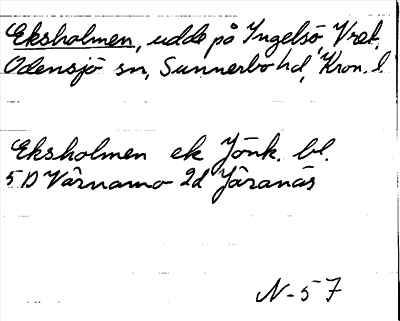 Eksholmen, udde på Ingelsö, Vret,
Odensjö sn, Sunnerbo hd, Kron. l.
Eksholmen ek Jönk. bl.
5 D Värnamo 2d Järanäs
N-57